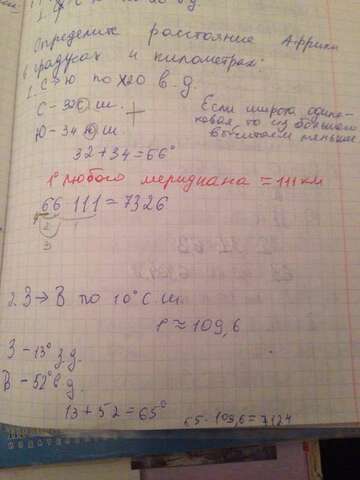 Определить расстояние Африки
в градусах и километрах:
1. С→Ю по 20 в.д.
С - 32 с ш.
Ю - 34 ю ш.
Если широта одина-
ковая, то из большего
вычитаем меньшее
32+34=66°
1° любого меридиана = 111 км
66 111=7326
1
2
3
2. З→В по 10° с.ш.
1°≈109,6
З - 13° з.д.
В - 52° в.д.
13+52=65°
65·109,6=7124